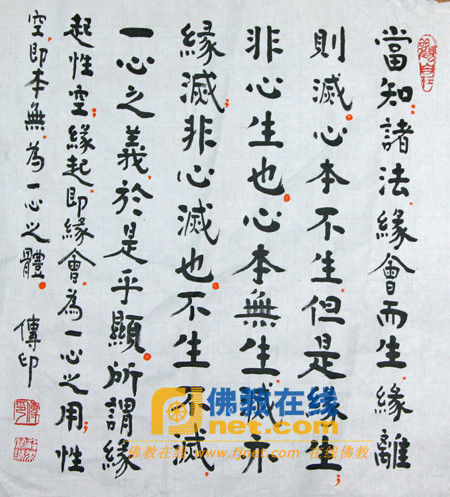 當知諸法緣會而生緣離
則滅心本不生但是生
非心生也心本無生滅亦
緣滅非心滅也不生不滅
一心之義於是乎顯所謂緣
起性空緣起即緣會為一心之用性
空即本無為一心之體
傳印
佛教在线
fjnet.com
佛教在线 www.fjnet.com 佛教